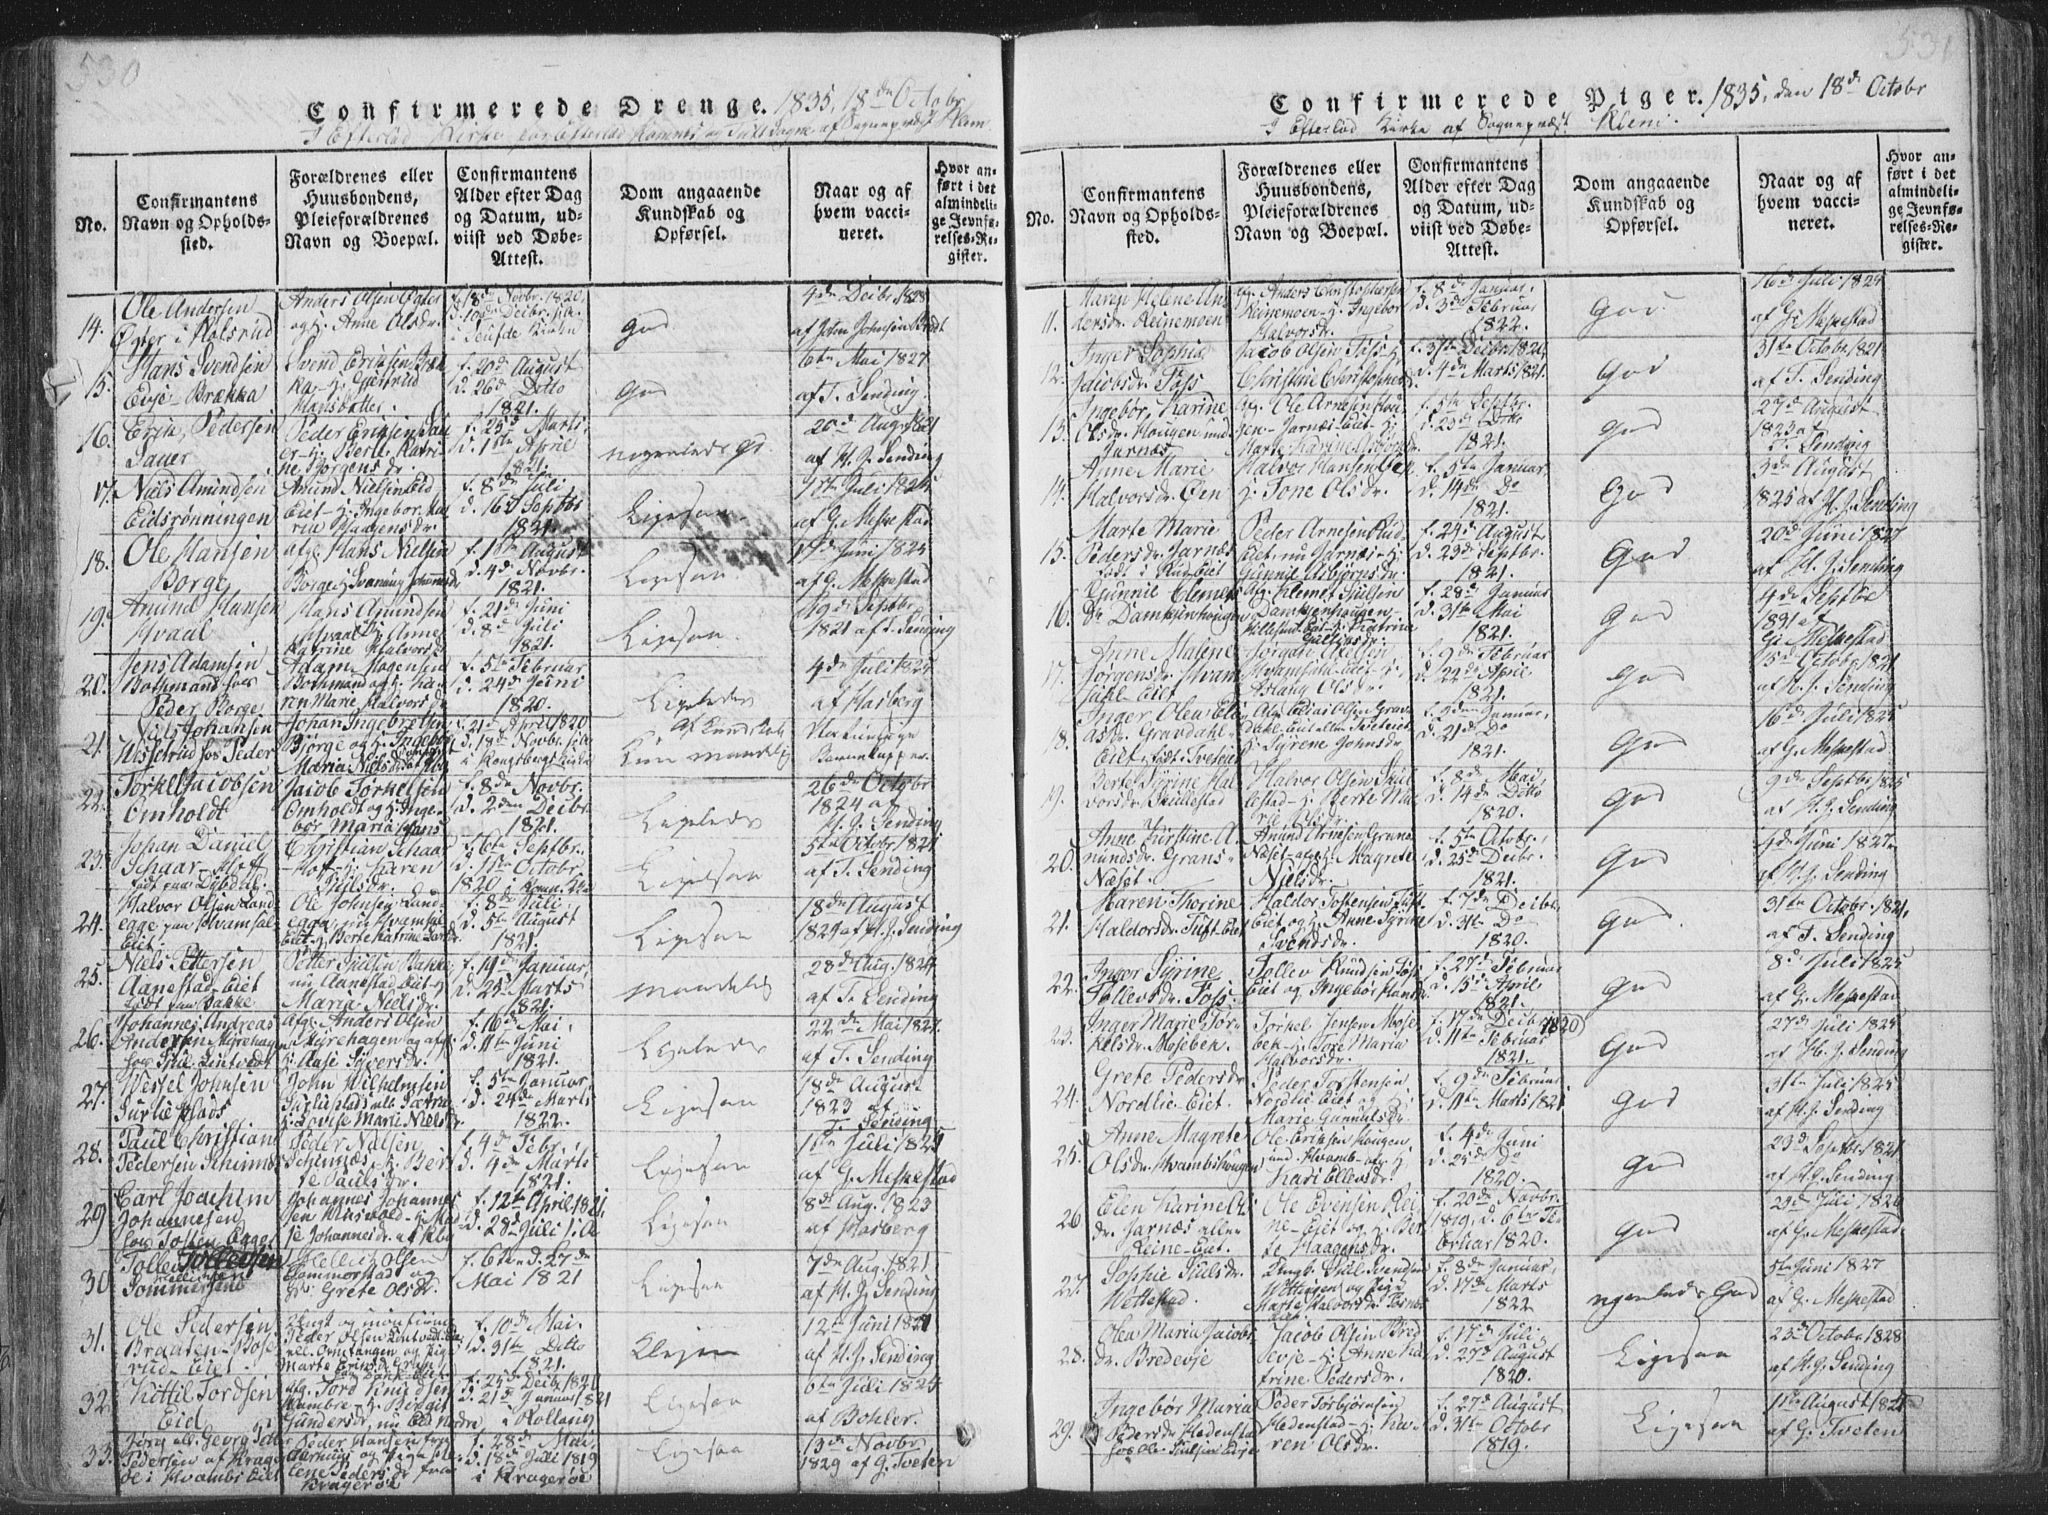 530
Confirmerede Drenge. 1835, 18de Octobr
I Efterlød Kirke af Sognepræst
No.
Confirmantens Navn og Opholds-sted.
Forældrenes eller Huusbondens, Pleieforældrenes Navn og Boepæl.
Confirmantens Alder efter Dag og Datum, ud-viist ved Døbe-Attest.
Dom angaaende Kundskab og Opførsel.
Naar og af hvem vacci-neret.
Hvor an-ført i det almindeli-ge Jevnfø-relses-Re-gister.
14.
Ole Andersen
Anders Olsen
og h. Anne Olsdr.
f. 18de Novbr. 1820,
d. 10de Decbr.
god
4de Decbr 1828
af John Johnsen
15.
Hans Svendsen
Brække
Svend Eriksen
f. 20de August
d. 26de Ditto
1821.
god
6te Mai 1827
af T. Sending.
16.
Erik Pedersen
Sauer
Peder Eriksen Sau-
er
f. 25de Marts,
d. 1ste April
1821.
nogenleds gd.
20de Aug
af H. J. Sending
17.
Niels Amundsen
Eidsrønningen
Amund Nielsen Eid
Eiet - h. Ingebor Ka-
ria Haagensdr.
f. 8de Juli
d. 16de Septbr
1821.
Ligesaa
1ste Juli 1825
af G. Meskestad
18.
Ole Hansen
Borge
afg. Hans Nielsen
Borge
f. 1ste August
d. 4de Novbr.
1821.
Ligesaa
17de Juni 1825
af G. Meskestad
19.
Amund Hansen
Hvaal
Hans Amundsen
Hvaal h. Anne
Katrine Halvorsdr
f. 21de Juni
d. 8de Juli
1821.
Ligesaa.
19de Septbr
1821 af T. Sending
20.
Jens Adamsen
Bothmand hos
Peder Borge
Adam Mogensen
Bothmand og h. Ka-
ren Marie Halvorsdr
f. 5te Februar
d. 24de Juni
1820.
Ligeledes
4de Juli 1825
af Hasberg
21.
Nils Johansen
hos Peder
Johan Ingebretsen
Bjørge og h. Ingeborg
Maria Nielsdr
f. 21de April 1820
d. 18de Novbr.
i Kongsberg Kirke
af Kundskab
Kun maadelig
Naturlige
Barnekopper.
22.
Torkel Jacobsen
Omholdt
Jacob Torkelsen
Omholdt og h. Inge-
bor Maria Hans
f. 8de Novbr.
d. 2den Decbr.
1821.
Ligeledes
26de Octobr
1824 af
H. J. Sending
23.
Johan Daniel
Schaar - Hoff
Christian Schaar
Hoff - h. Karen
Juulsdr.
f. 6te Septbr.
d. 1ste Octobr.
1820
Ligesaa
5te Octobr 1821
af T. Sending
24.
Halvor Olsen Land-
egge paa Hvamsal
Eiet.
Ole Johnsen Land-
egge, nu Hvamsal
Eiet - h. Berte Katrine
f. 8de Juli,
d. 5te August
1821.
Ligesaa
18de August
1824 af H. J. Sending
25.
Niels Pettersen
Aanestad-Eiet
født paa Bakke
Petter Juulsen Bakke,
nu Aanestad Eiet - h.
Maria Nielsdr.
f. 19de Januar,
d. 25de Marts
1821.
maadelig
28de Aug. 1824
af T. Sending
26.
Johannes Andreas
Andersen Myrehagen
afg. Anders Olsen
Myrehagen og afg.
h. Aase Syversdr.
f. 16de Mai,
d. 11te Juni
1821.
Ligeledes
22de Mai 1827.
af T. Sending
27.
Wessel Johnsen
John Wilhelmsen
h. Lovise Marie Nielsdr
f. 5te Januar,
d. 24de Marts
1822.
Ligesaa
18de August
1823 af
T. Sending
28.
Paul Christian
Pedersen Skinnes
Peder Nielsen
Skinnes - h. Ber-
te Paulsdr.
f. 4de Febr.
d. 4de Marts
1821.
Ligesaa
11te Juli 1825
af G. Meskestad
29
Carl Joachim
Johannesen
hos Tosten Egge
Johannes Johannes-
sen
f. 12te April 1821
d. 28de Juli
Ligesaa
8de Aug. 1823
af Hasberg
30
Tollev Tollevsen
Hellik Olsen
Sommerstad og
Grete Olsdr.
f. 6te d. 27de
Mai 1821
Ligesaa
7de Aug. 1821
af H. J. Sending
31.
Ole Pedersen
Braaten-Bose-
rud-Eiet.
Peder Olsen
f. 10de Mai.
d. 31te Ditto
1821.
Ligesaa
12te Juni 1821
af H. J. Sending
32.
Kittil Tordsen
Eid
afg. Tord Knudsen
f. 25de Decbr. 1821
d. 21de Januar 1821
i Rollaug
Ligesaa
6te Juli 1825
af Bohler.
33.
Jørg ell. Georg
Pedersen af Krage-
rø i Hvambs Eiet
Peder Hansen fra
f. 28de Mai,
d. 18de Juli 1819
i Kragerøe
Ligesaa
13de Novbr
1829 af G. Tveten
531
Confirmerede Piger. 1835, den 18de Octobr
I Efterlød Kirke af Sognepræst Klem.
No.
Confirmantens Navn og Opholds-sted.
Forældrenes eller Huusbondens, Pleieforældrenes Navn og Boepæl.
Confirmantens Alder efter Dag og Datum, ud-viist ved Døbe-Attest.
Dom angaaende Kundskab og Opførsel.
Naar og af hvem vacci-neret.
Hvor an-ført i det almindeli-ge Jevnfø-relses-Re-gister.
11.
Karen Helene An-
dersdr. Reinemoen
afg. Anders Christophersen
Reinemoen - h. Ingebor
Halvorsdr.
f. 8de Januar,
d. 3de Februar
1822.
God
16de Juli 1825
af G. Meskestad
12.
Inger Sophie
Jacobsdr. Foss
Jacob Olsen Foss - h.
Christine Christophers
f. 31te Decbr. 1820,
d. 4de Marts 1821.
God
31te Octobr 1821
af T. Sending
13.
Ingebor Karine
Olsdr. Hougen und.
Jarnæs
afg. Ole Arnesen Hou-
gen - Jarnæs-Eiet - h.
Marte Karine
f. 5te Septbr.
d. 23de Ditto
1821.
God
27de August
1823 af
T. Sending
14.
Anne Marie
Halvorsdr. Øen
Halvor Hansen Øen
h. Tone Olsdr.
f. 5te Januar,
d. 14de Do
1821.
God
3de August
1825 af H. J. Sending
15.
Marte Marie
Pedersdr. Jarnæs
Peder Arnesen Rud-
Eiet, nu Jarnæs - h.
Gunnil Asbjørnsdr.
f. 24de August
d. 23de Septbr.
1821.
God
20de Juni 1827
af H. J. Sending
16.
Gunnil Clemets-
dr. Damkjenhougen
afg. Clemet Juulsen
Damkjenhougen
f. 28de Januar
d. 31te Mai
1821.
God
4de Septbr
1821 af
G. Meskestad
17.
Anne Malene
Jørgensdr. Hvam-
sahl Eiet
Jørgen Axelsen
Hvamsahl-Eiet - h.
Aslaug Olsdr.
f. 9de Februar
d. 22de April
1821.
God
15de Octobr 1821
af H. J. Sending
18.
Inger Olea Eli-
asdr. Gravdahl-
Eiet, født i Tveteiet
afg. Elias Olsen Grav-
dahl-Eiet eller Tveteiet
h. Syrene Johnsdr.
f. 2den Januar,
d. 21de Do
1821.
God
16de Juli 1825
af G. Meskestad
19.
Berte Syrine Hal-
vorsdr. Skullestad
Halvor Olsen Skul-
lestad - h. Berte Ma-
rie Olsdr.
f. 8de Mai,
d. 14de Ditto
1820.
God
9de Septbr 1825
af H. J. Sending
20.
Anne Kirstine A-
mundsdr. Grans-
Næset.
Amund Arnesen Grans-
Næset - afg. h. Magrete
Nielsdr.
f. 5te Octobr.,
d. 25de Decbr.
1821.
God
4de Juni 1827
af H. J. Sending
21.
Maren Thorine
Haldorsdr. Tuft-Eiet
Haldor Tostensen Tuft-
Eiet og h. Anne Syrine
Svendsdr.
f. 7de Decbr.
d. 31te Do
1820.
God.
31te Octobr. 1821.
af T. Sending
22.
Inger Syrine
Tollevsdr. Foss.
Tollev Knudsen Foss
Eiet og Ingebor Hans
f. 27de Februar
d. 15de April
1821.
God
8de Juli 1825
af G. Meskestad
23.
Inger Marie Tor-
kelsdr. Mosebek
Torkel Jensen Mose-
bek - h. Tore Maria
Halvorsdr.
f. 17de Decbr. 1820
d. 11te Februar
1821.
God
27de Juli 1825
af H. J. Sending
24.
Grete Pedersdr
Nordlie-Eiet
Peder Torstensen
Nordlie Eiet og
Marie Gunnulsdr
f. 9de Februar
d. 11te Marts 1821
God
31te Juli 1825
af H. J. Sending
25.
Anne Magrete
Olsdr. Hvambshougen
Ole Eriksen Hougen
und. Hvamb - og h.
Kari Ellensdr.
f. 4de Juni
d. 25de Do
1820.
God
23de Septbr. 1821
af H. J. Sending
26.
Elen Karine Ols-
dr. Jarnæs eller
Reine-Eiet.
Ole Evensen Rei-
ne-Eiet og h. Ber-
te Haagensdr.
f. 20de Novbr.
1819, d. 6te Fe-
bruar 1820.
God
29de Juli 1820
af G. Meskestad
27.
Sophie Juulsdr.
Wettestad.
Ungk. Juul Svendsen
f. 8de Januar,
d. 17de Marts
1822
ngenleds God
5te Juni 1827
af G. Meskestad
28.
Olea Maria Jacobs-
dr. Bredevje
Jacob Olsen Bred-
evje - h. Anne Ka-
trine Pedersdr.
f. 17de Juli,
d. 27de August
1820.
Ligesaa
23de Octobr 1828
af H. J. Sending
29.
Ingebor Maria
Pedersdr. Hedenstad
Peder Torbjørnsen
Hedenstad - h. Ka-
ren Olsdr.
f. 27de August
d. 31te Octobr
1819.
Ligesaa
11te August 1821
af G. Tveten